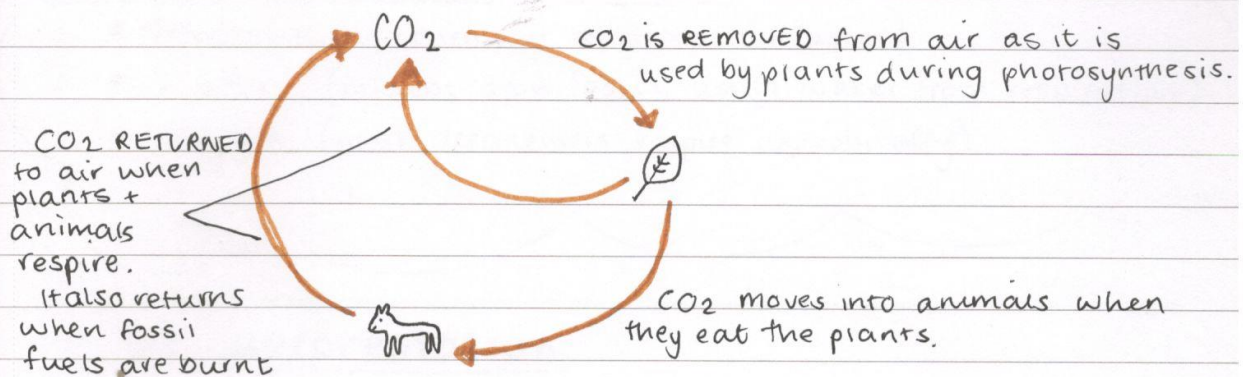 CO2
CO2 is REMOVED from air as it is
used by plants during photosynthesis.
CO2 RETURNED
to air when
plants +
animals
respire.
It also returns
when fossil
fuels are burnt
CO2 moves into animals when
they eat the plants.